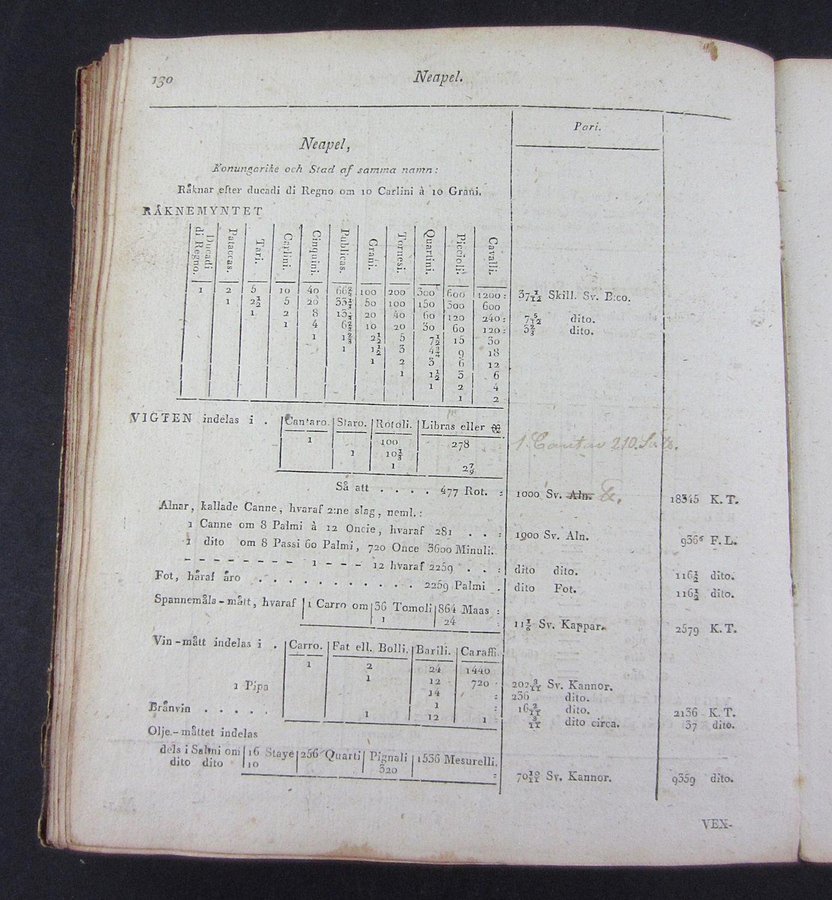 130 Neapel.
Pari.
Neapel,
Konungarike och Stad af samma namn:
Räknar efter ducadi di Regno om 10 Carlini à 10 Grani.
RÄKNEMYNTET
Ducadi di Regno. Pataccas. Tari. Carlini. Cinquini. Publicas. Grani. Tornesi. Quartini. Piccioli. Cavalli.
1 2 5 10 40 66⅔ 100 200 300 600 1200: 37 1/12 Skill. Sv. B:co.
1 2½ 5 20 33⅓ 50 100 150 300 600
1 2 8 13⅓ 20 40 60 120 240: 7 5/12 dito.
1 4 6⅔ 10 20 30 60 120: 3⅔ dito.
1 1⅔ 2½ 5 7½ 15 30
1 1½ 3 9 18
1 2 3 6 12
1 1½ 3 6
1 2 4
1 2
VIGTEN indelas i . Cantaro. Staro. Rotoli. Libras eller ℔
1 100 278 1 Cantar 210. Sv. ℔.
1 10⅓
1 2 7/9
Så att . . . . 477 Rot. : 1000 Sv. Aln. ℔. 18345 K. T.
Alnar, kallade Canne, hvaraf 2:ne slag, neml.:
1 Canne om 8 Palmi à 12 Oncie, hvaraf 281 . . : 1900 Sv. Aln. 936⁶ F. L.
1 dito om 8 Passi 60 Palmi, 720 Once 3600 Minuli.
- - - - - - - 1 - - - 12 hvaraf 2259 . . : dito dito. 116½ dito.
Fot, häraf äro . . . . . . . . . . . 2259 Palmi . dito Fot. 116½ dito.
Spannemåla-mått, hvaraf 1 Carro om 36 Tomoli 864 Maas :
1 24 11⅙ Sv. Kappar. 2579 K. T.
Vin-mått indelas i . Carro. Fat ell. Bolli. Barili. Caraffi.
1 2 24 1440
1 Pipa 1 12 720 - 202 9/11 Sv. Kannor.
14 : 236 dito.
Bränvin . . . . . 1 : 16 2/11 dito. 2136 K. T.
1 12 1 3/11 dito circa. 37 dito.
Olje-måttet indelas
dels i Salmi om 16 Staye 256 Quarti Pignali 1536 Mesurelli.
dito dito 10 320
70 10/11 Sv. Kannor. 9359 dito.
VEX-